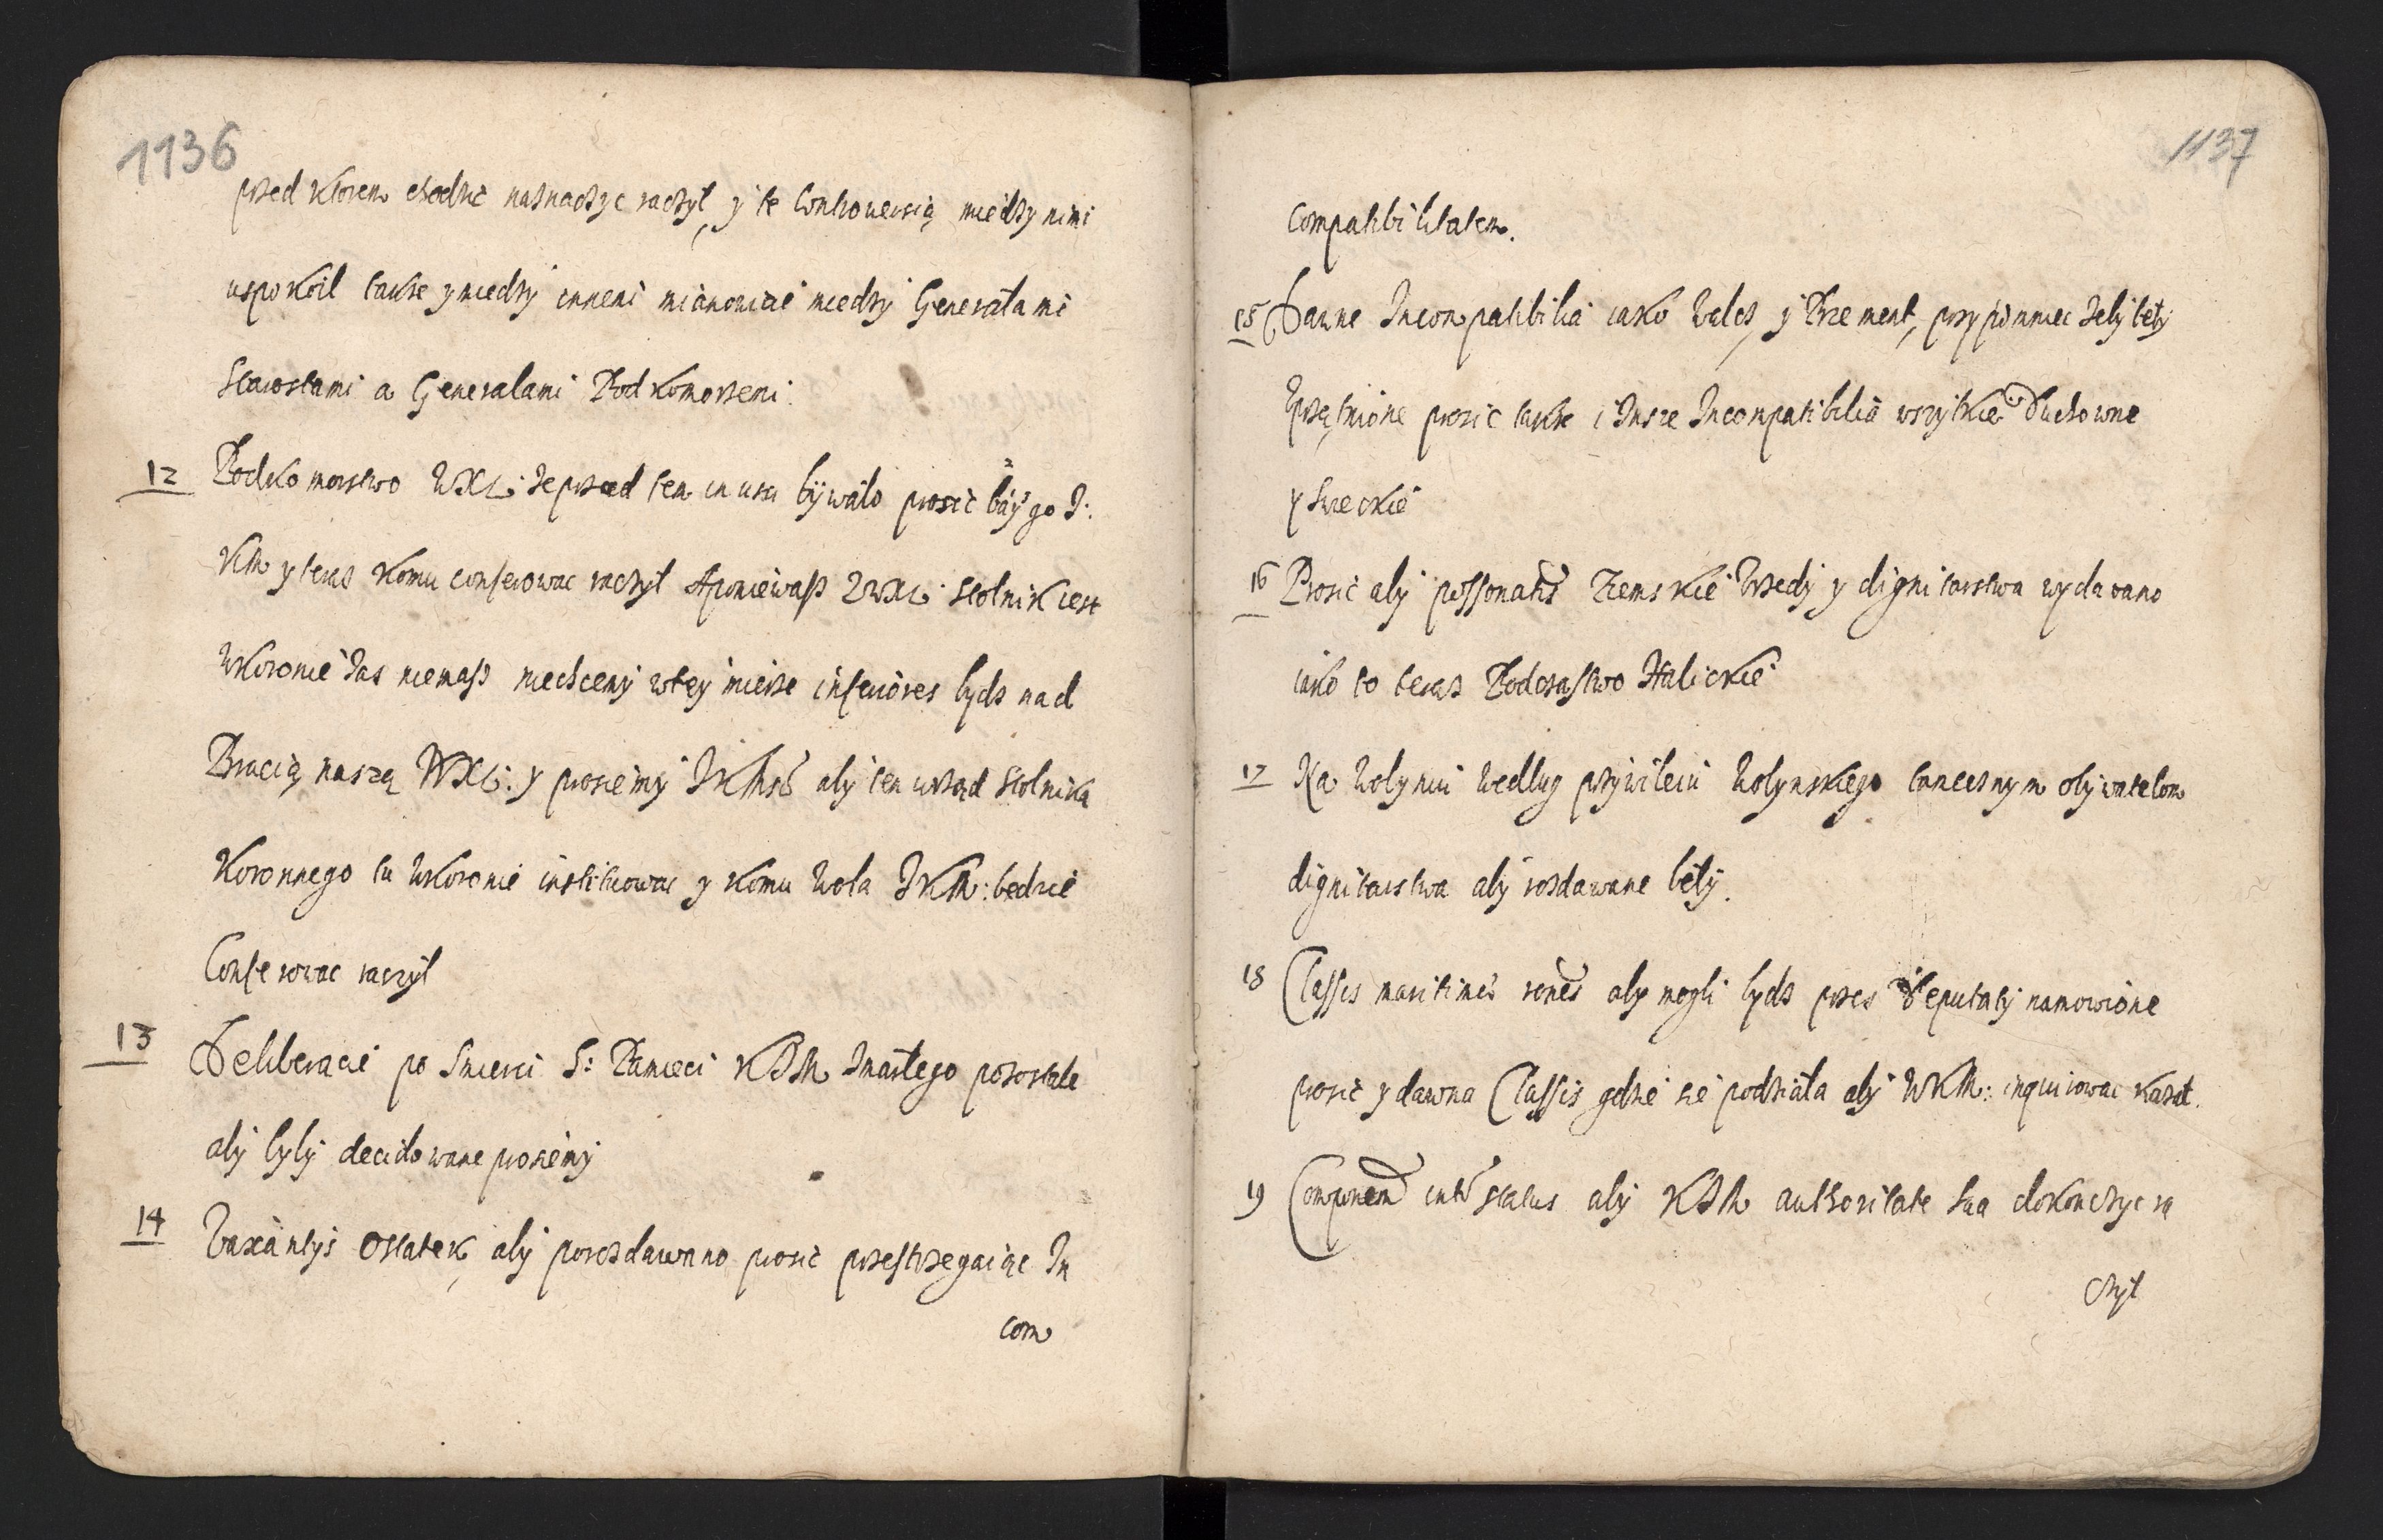 1136
przed ktorem chodzic naznaczyc raczył, y te Controuersią miedzy nimi
uspokoil takze y miedzy innemi mianowicie miedzy Generałami
Starostami a Generalami Podkomorzemi.
12 Podkomorstwo WXL: ze przed tem in usu bywało prosic
KM y teraz komu conferowac raczył Aponiewasz WXL: Stolnik iest
WKoronie zas niemasz niechcemy wtey mierze inferiores bydz nad
Bracią naszą WXL: y prosiemy JKMsci aby ten urząd Stolnika
Koronnego tu WKoronie instituowac y komu Wola JKM: bedzie
Conferowac raczył
13 Deliberacie po Smierci S: Pamieci KJM Zmarłego pozostałe
aby byly decidowane prosiemy
14 Vaxantys ostatek, aby porozdawano prosic przestrzegaiąc In
com
1137
Compatibilitatem.
15 Dawne Incompatibilia iako Walcz, y Krzement, przypomniec zeby beły
Uprzątnione prosic takze i Insze Incompatibilia wszytkie Duchowne
y Swieckie
16 Prosic aby possonatis Ziemskie Vrzedy y dignitarstwa wydawano
iako to teraz Podczastwo Halickie
17 Na Wolyniu Wedlug przywileiu Wolynskiego tamecznym obywatelom
dignitarstwa aby rozdawane beły.
18 Classis maritimes aby mogli bydz przez Deputaty namowione
prosic y dawna Classis gdzie sie podziała aby WKM: inquirowac kazał.
19 inter status aby KJM authoritate sua dokonczyc ra
czył